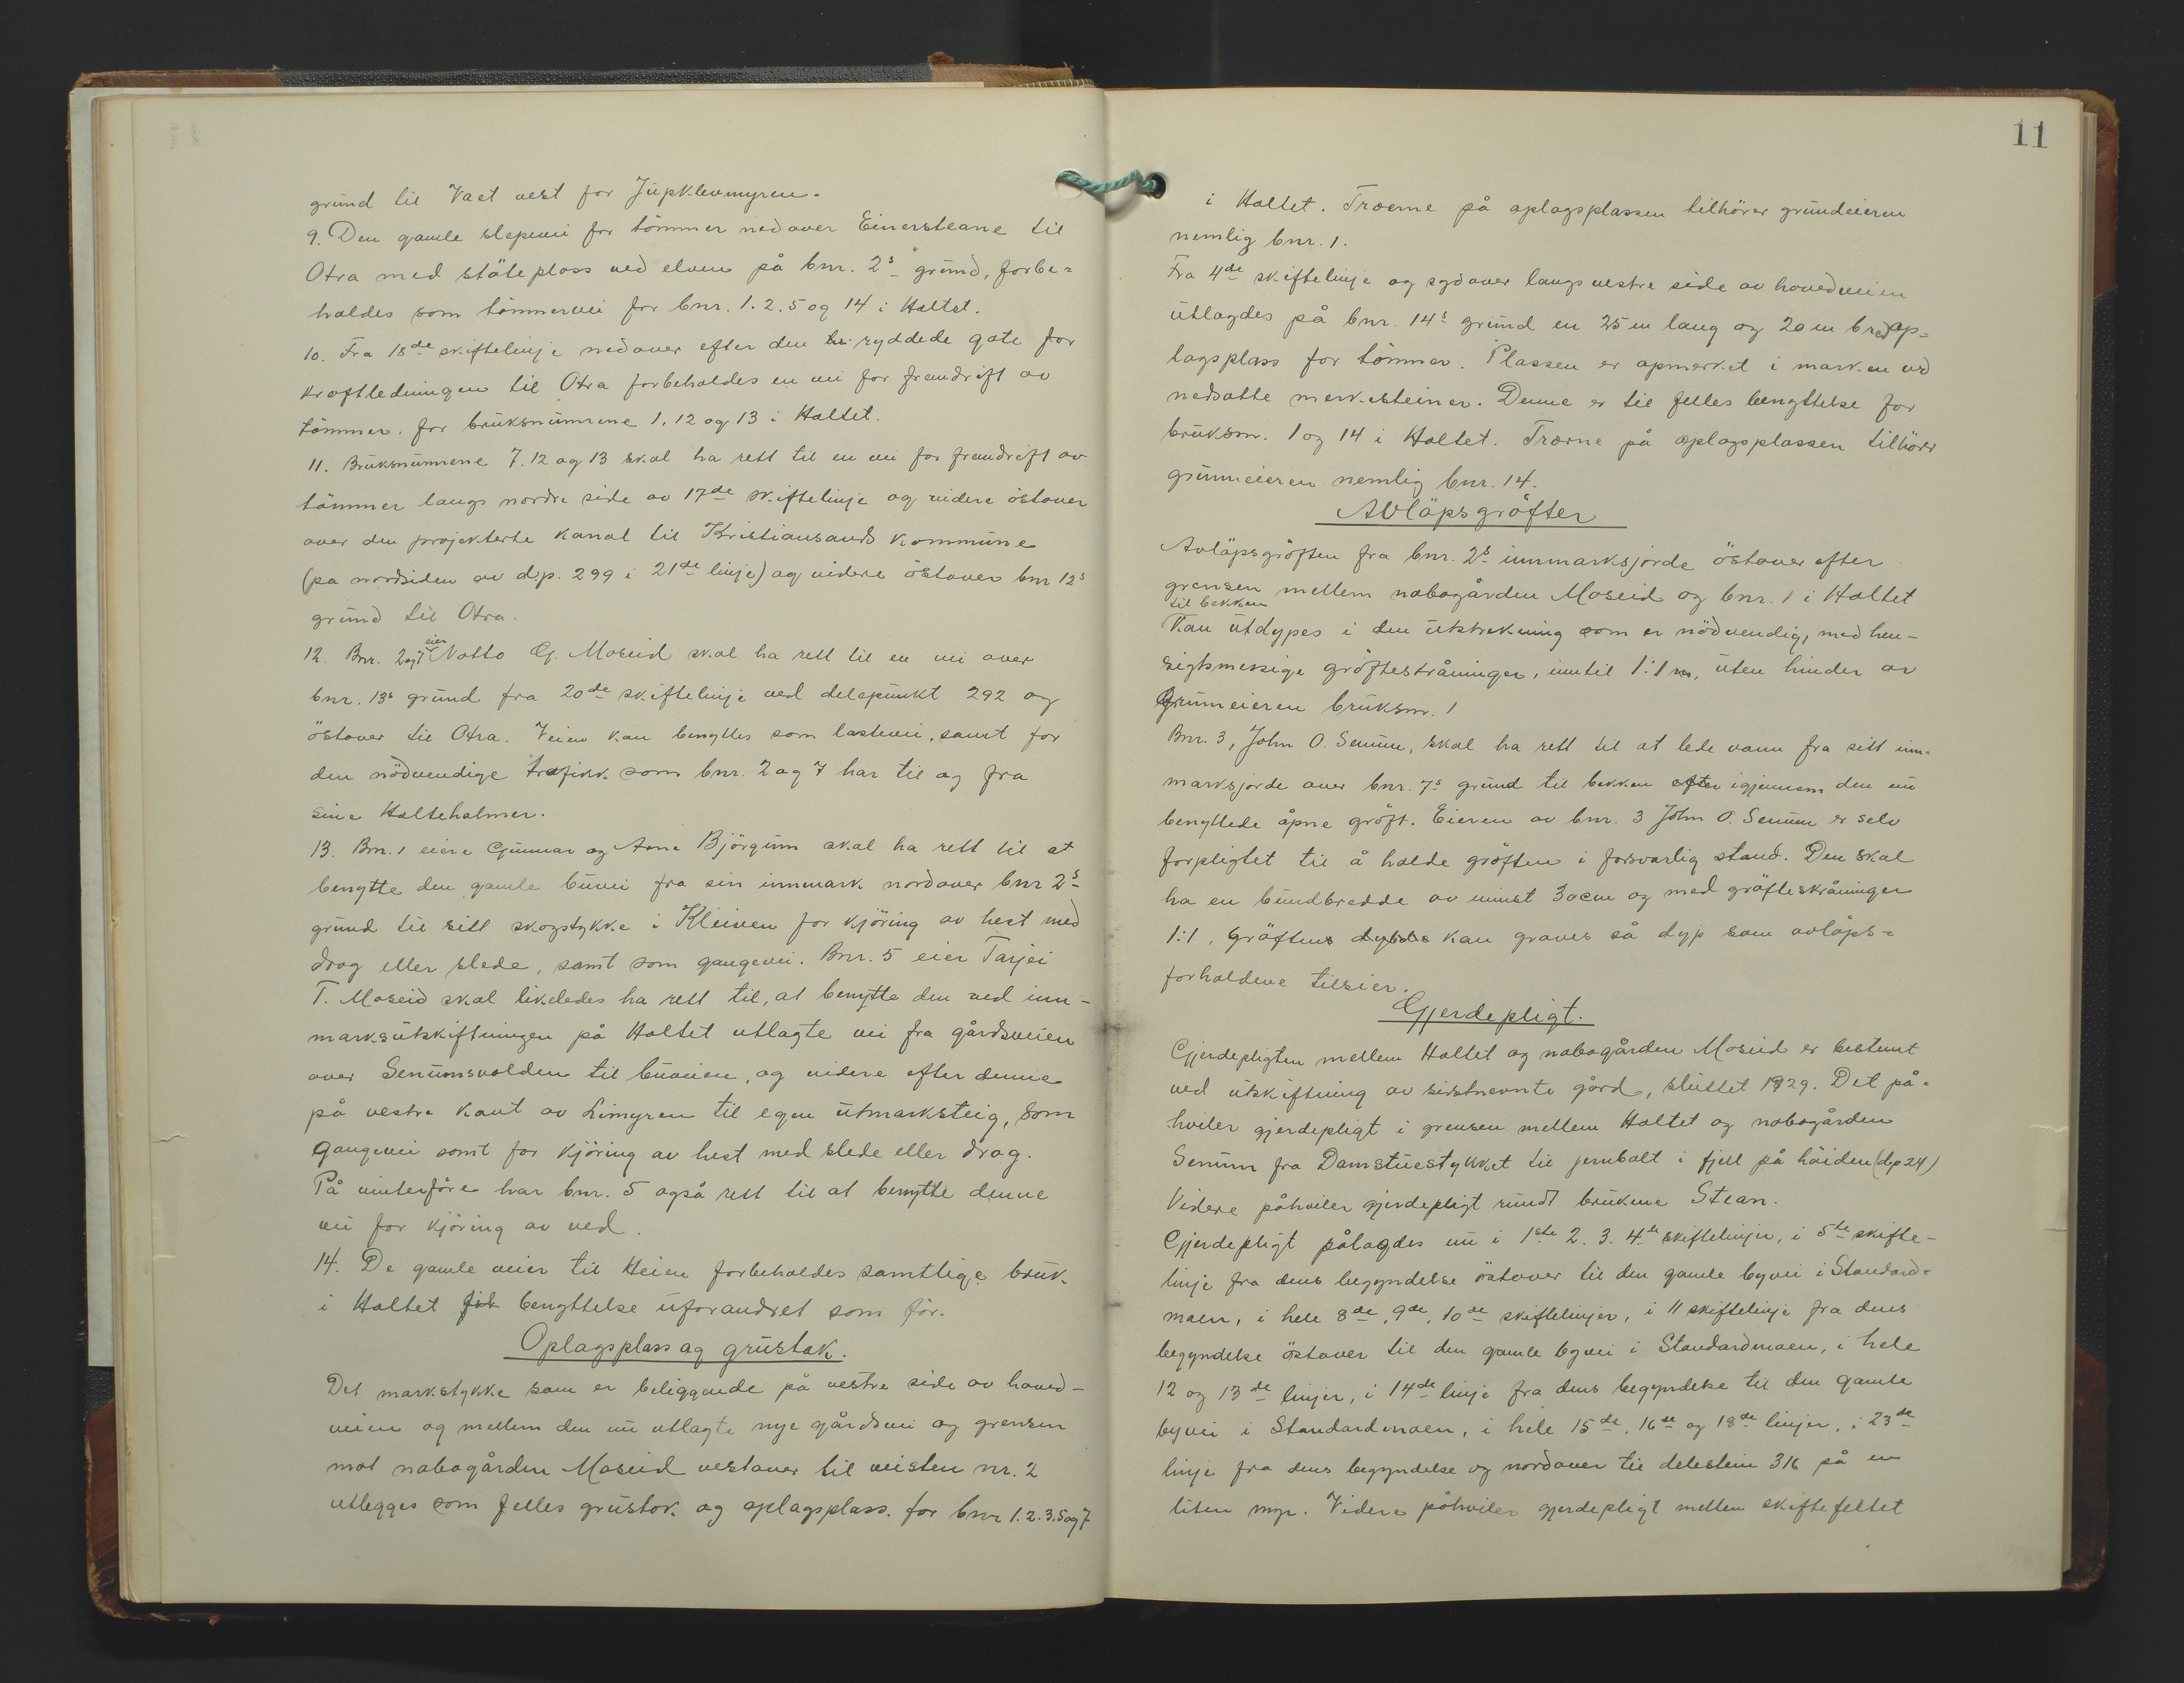 grund til Vaet vest for Jupklevmyren.
9. Den gamle slepevei for tömmer nedover Einersteane til
Otra med stöteplass ved elven på bnr. 2s grund, forbe=
holdes som tömmervei for bnr. 1. 2. 5 og 14 i Haltet.
10. Fra 18de skiftelinje nedover efter den ryddede gate for
kraftledningen til Otra forbeholdes en vei for fremdrift av
tömmer. for bruksnumrene 1, 12 og 13 i Haltet.
11. Bruksnumrene 7. 12 og 13 skal ha rett til en vei for fremdrift av
tömmer langs nordre side av 17de skiftelinje og videre östover
over den projekterte kanal til Kristiansands kommune
(på nordsiden av d.p. 299 i 21de linje) og videre östover bnr 12s
grund til Otra.
12. Bnr. 2 og 7 eier Notto G. Moseid skal ha rett til en vei over
bnr. 13s grund fra 20de skiftelinje ved delepunkt 292 og
östover til Otra. Veien kan benyttes som lastevei, samt for
den nödvendige trafikk som bnr. 2 og 7 har til og fra
sine Halteholmer.
13. Bnr. 1 eiere Gunnar og Arne Björgum skal ha rett til at
benytte den gamle buvei fra sin innmark nordover bnr 2s
grund til sitt skogstykke i Kleiven for kjöring av hest med
drog eller slede, samt som gangevei. Bnr. 5 eier Tarjei
T. Moseid skal likeledes ha rett til, at benytte den ved inn-
marksutskiftningen på Haltet utlagte vei fra gårdsveien
over Senumsvolden til buveien, og videre efter denne
på vestre kant av Limyren til egen utmarksteig, som
gangevei samt for kjöring av hest med slede eller drog.
På vinterföre har bnr. 5 også rett til at benytte denne
vei for kjöring av ved.
14. De gamle veier til Heien forbeholdes samtlige bruk
i Haltet benyttelse uforandret som för.
Oplagsplass og grustak.
Det markstykke som er beliggende på vestre side av hoved-
veien og mellem den nu utlagte nye gårdsvei og grensen
mot nabogården Moseid vestover til veisten nr. 2
utlegges som felles grustak og oplagsplass. for bnr 1. 2. 3. 5 og 7
11
i Haltet. Trærne på oplagsplassen tilhörer grundeieren
nemlig bnr. 1.
Fra 4de skiftelinje og sydover langs vestre side av hovedveien
utlagdes på bnr. 14s grund en 25 m lang og 20 m bred op=
lagsplass for tömmer. Plassen er opmerket i marken ved
nedsatte merkesteiner. Denne er til felles benyttelse for
bruksnr. 1 og 14 i Haltet. Trærne på oplagsplassen tilhörer
grunneieren nemlig bnr. 14.
Avlöpsgröfter
Avlöpsgröften fra bnr. 2s innmarksjorde östover efter
grensen mellem nabogården Moseid og bnr. 1 i Haltet
til bekken
kan utdypes i den utstrekning som er nödvendig, med hen-
sigtsmessige gröfteskråninger, inntil 1:1 m, uten hinder av
grunneieren bruksnr. 1
Bnr. 3, John O. Senum, skal ha rett til at lede vann fra sitt inn-
marksjorde over bnr. 7s grund til bekken efter igjennem den nu
benyttede åpne gröft. Eieren av bnr. 3 John O. Senum er selv
forpligtet til å holde gröften i forsvarlig stand. Den skal
ha en bundbredde av minst 30cm og med gröfteskråninger
1:1. Gröftens dybde kan graves så dyp som avlöps=
forholdene tilsier.
Gjerdepligt.
Gjerdepligten mellem Haltet og nabogården Moseid er bestemt
ved utskiftning av sistnevnte gård, sluttet 1929. Det på-
hviler gjerdepligt i grensen mellem Haltet og nabogården
Senum fra Damstuestykket til jernbolt i fjell på höiden (dp 24)
Videre påhviler gjerdepligt rundt brukene Stean.
Gjerdepligt pålagdes nu i 1ste 2. 3. 4de skiftelinjer, i 5te skifte-
linje fra dens begyndelse östover til den gamle byvei i Standard=
moen, i hele 8de, 9de, 10de skiftelinjer, i 11 skiftelinje fra dens
begyndelse östover til den gamle byvei i Standardmoen, i hele
12 og 13de linjer, i 14de linje fra dens begyndelse til den gamle
byvei i Standardmoen, i hele 15de, 16de og 18de linjer, i 23de
linje fra dens begyndelse og nordover til delestein 316 på en
liten myr. Videre påhviler gjerdepligt mellem skiftefeltet